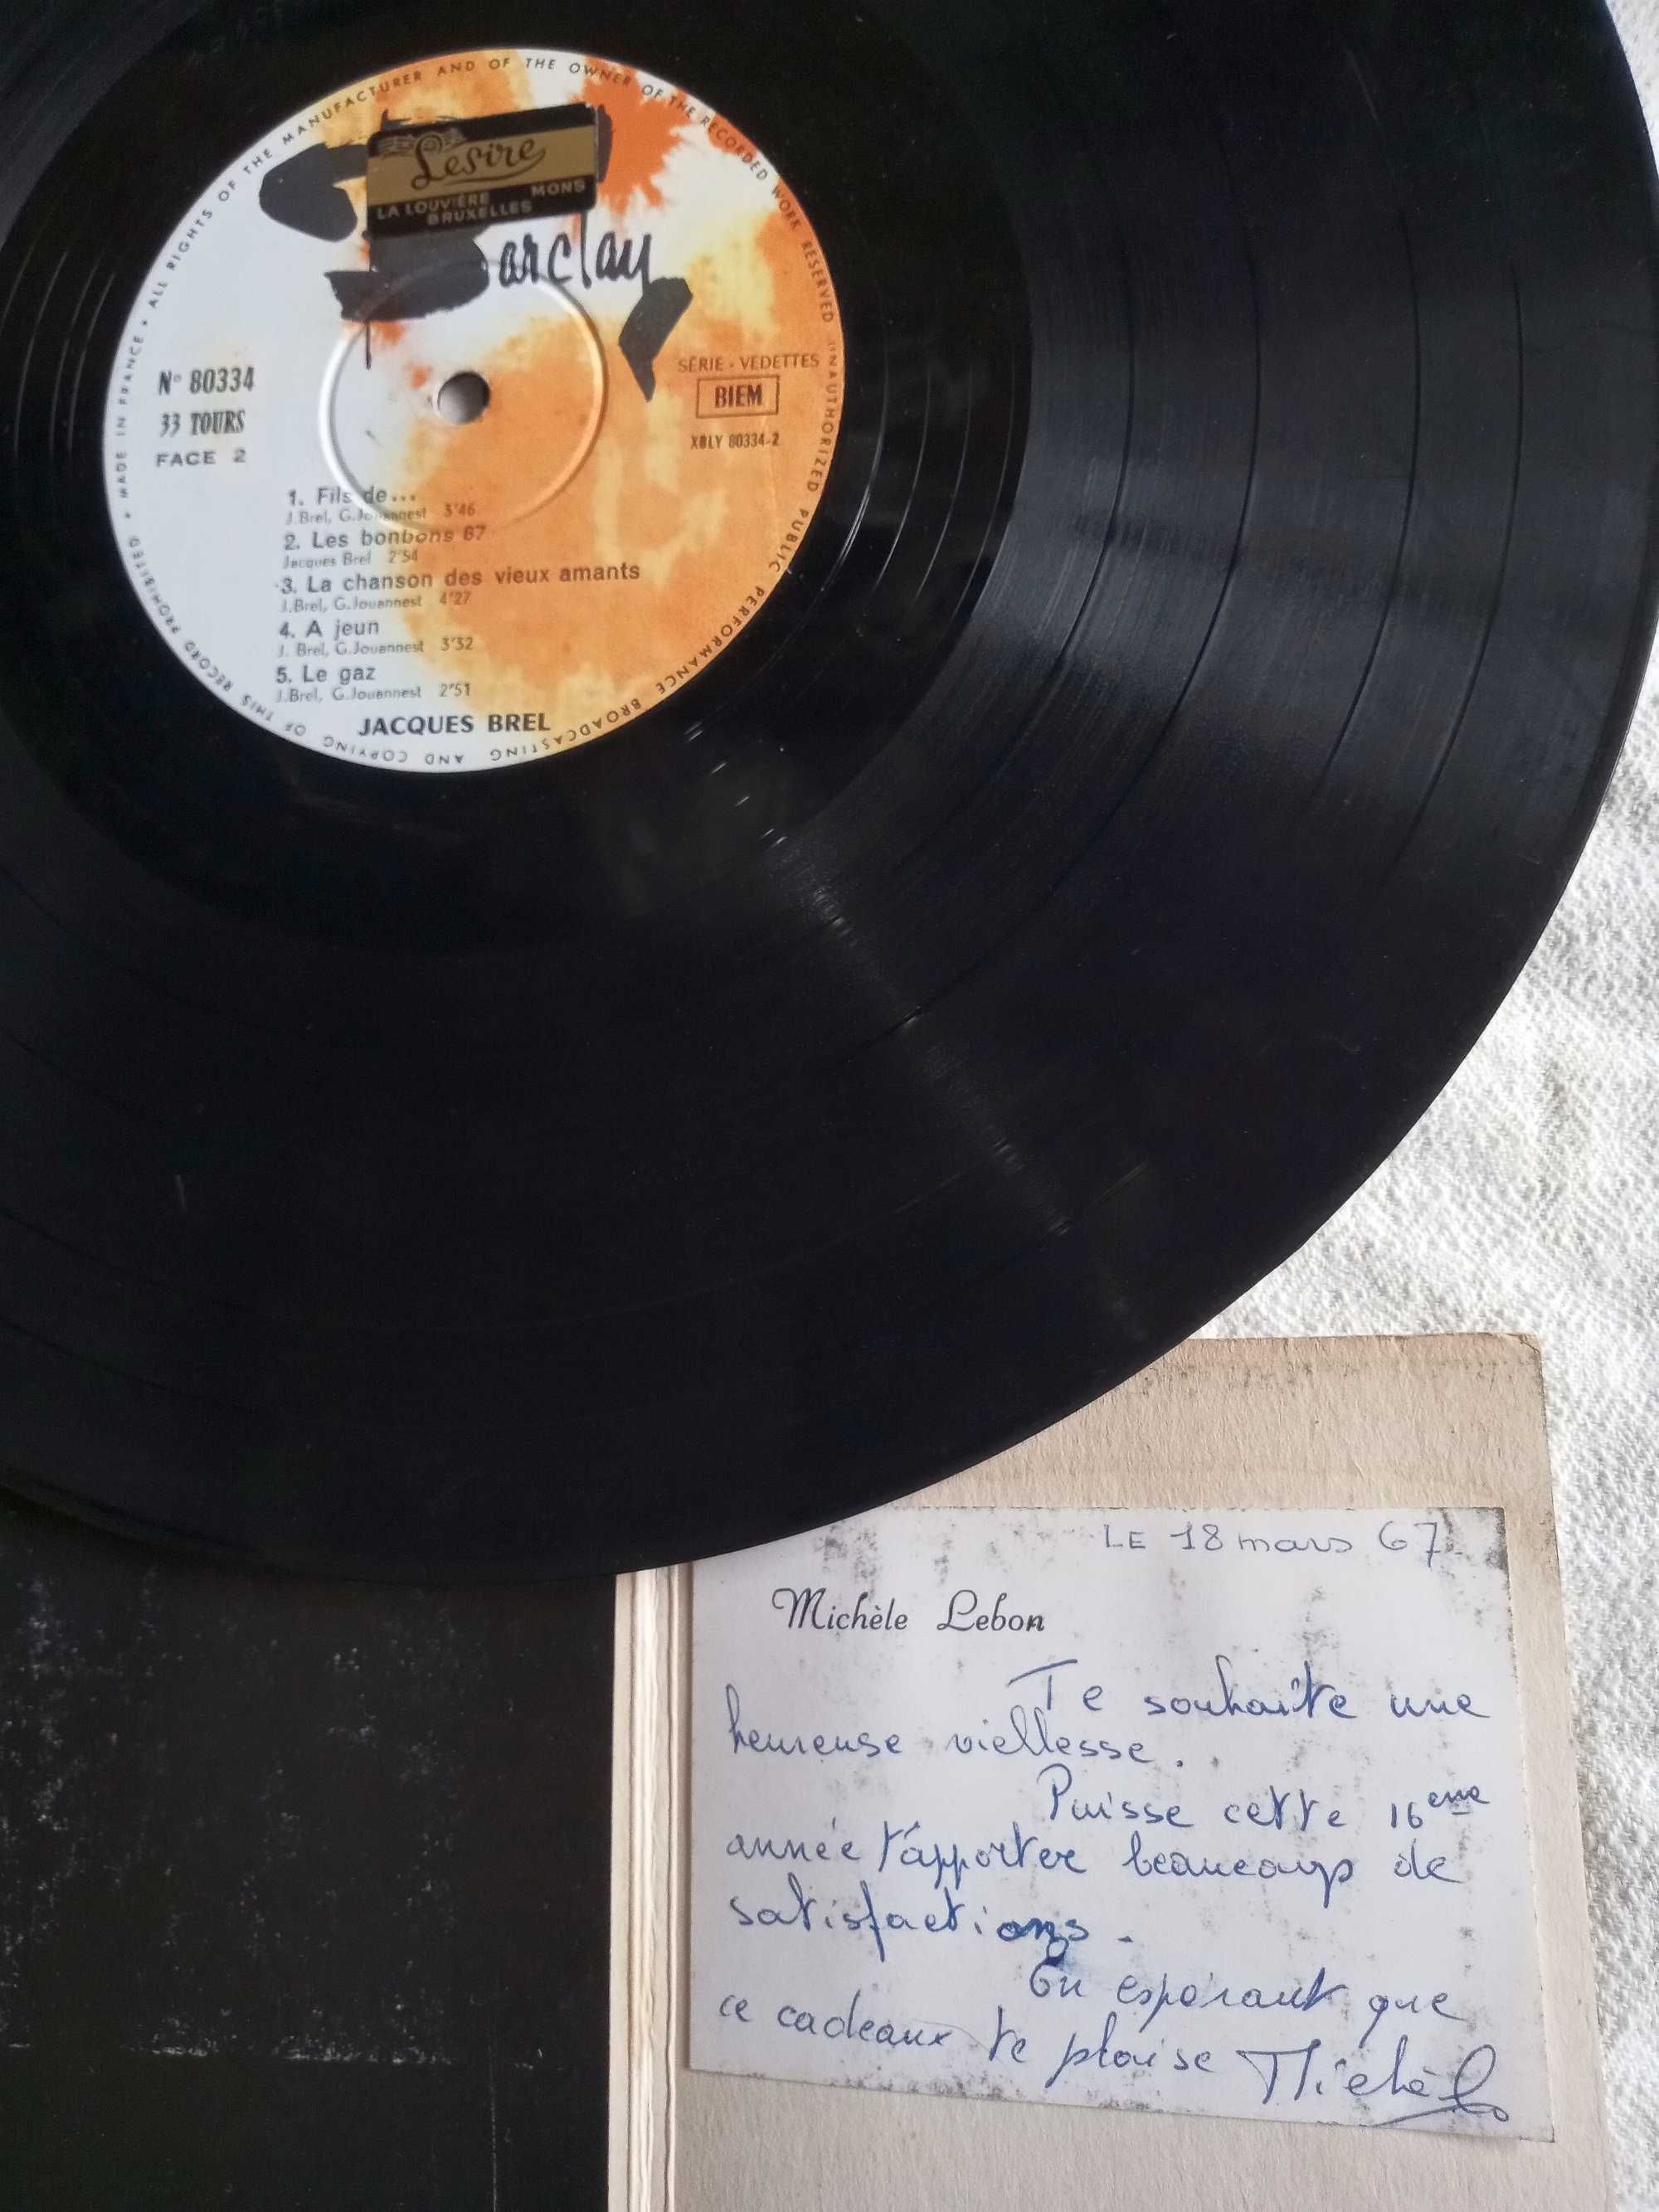 ALL RIGHTS OF THE MANUFACTURER AND OF THE OWNER OF THE RECORDED WORK RESERVED UNAUTHORIZED PUBLIC PERFORMANCE BROADCASTING AND COPYING OF THIS RECORD PROHIBITED • MADE IN FRANCE •
Lesire
LA LOUVIÈRE MONS
BRUXELLES
Barclay
N° 80334
33 TOURS
FACE 2
SÉRIE - VEDETTES
BIEM
XBLY 80334-2
1. Fils de...
J.Brel, G.Jouannest 3'46
2. Les bonbons 67
Jacques Brel 2'54
3. La chanson des vieux amants
J.Brel, G.Jouannest 4'27
4. A jeun
J. Brel, G.Jouannest 3'32
5. Le gaz
J.Brel, G.Jouannest 2'51
JACQUES BREL
LE 18 mars 67.
Michèle Lebon
Te souhaite une
heureuse viellesse.
Puisse cette 16eme
année t'apporter beaucoup de
satisfactions.
En espérant que
ce cadeaux te plaise Michèle